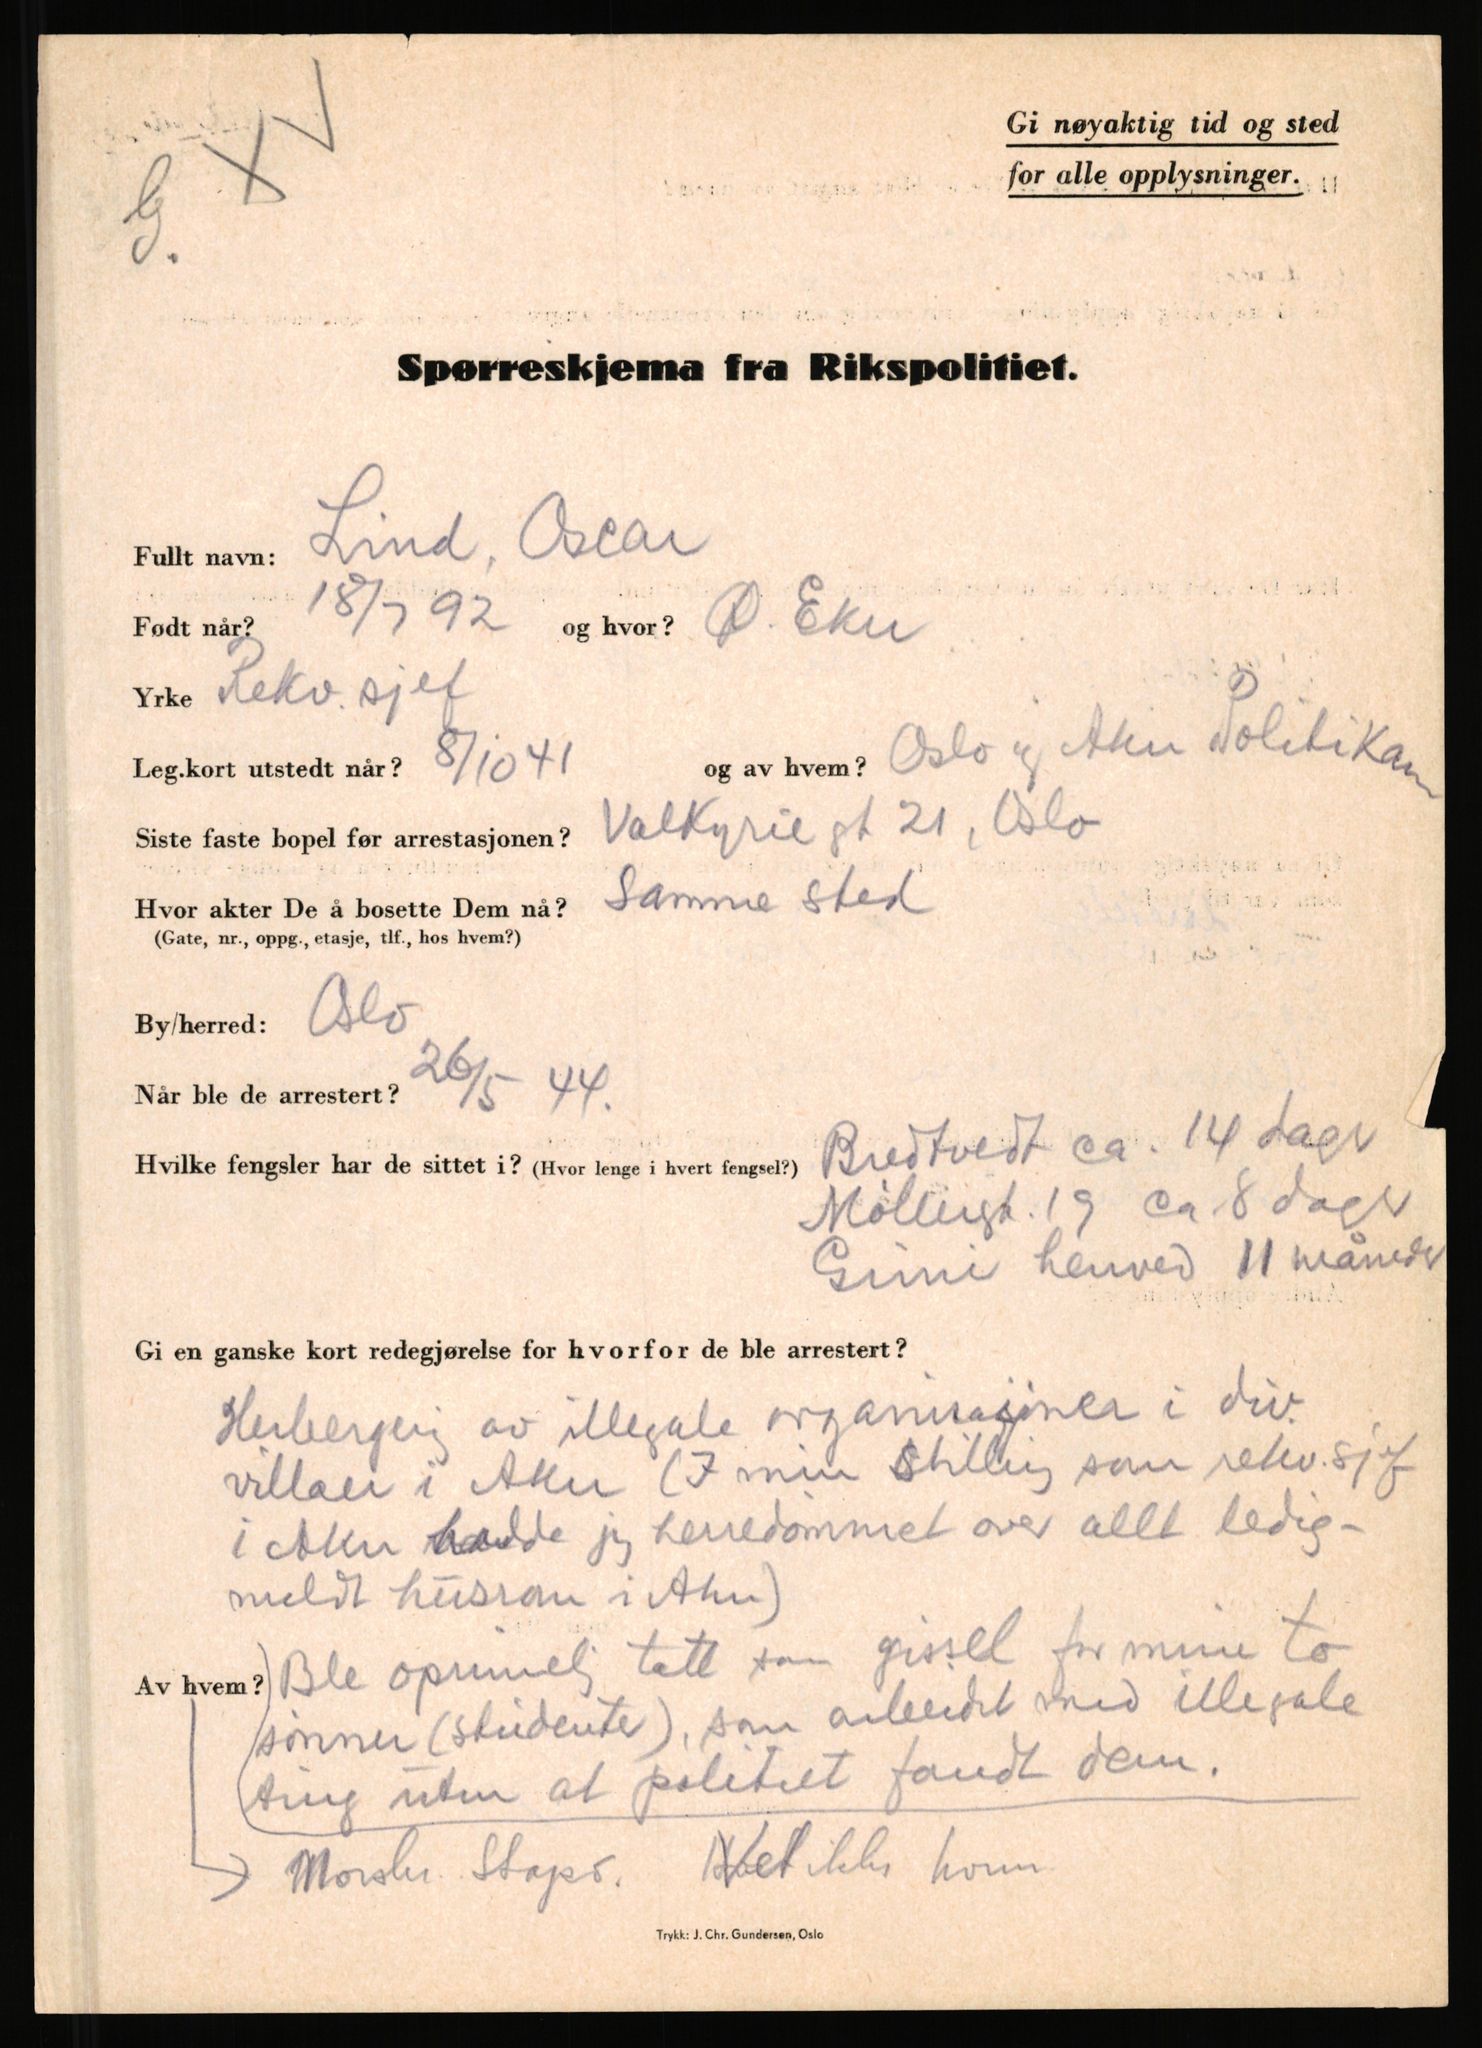 G. XV
Gi nøyaktig tid og sted
for alle opplysninger.
Spørreskjema fra Rikspolitiet.
Fullt navn: Lind, Oscar
Født når? 18/7 92 og hvor? Ø. Eker
Yrke Rekv. sjef
Leg.kort utstedt når? 8/10 41 og av hvem? Oslo og Aker Politikam
Siste faste bopel før arrestasjonen? Valkyrie gt 21, Oslo
Hvor akter De å bosette Dem nå? Samme sted
(Gate, nr., oppg., etasje, tlf., hos hvem?)
By/herred: Oslo
Når ble de arrestert? 26/5 44.
Hvilke fengsler har de sittet i? (Hvor lenge i hvert fengsel?) Bredtvedt ca. 14 dager
Møllergt. 19 ca 8 dager
Grini henved 11 måneder
Gi en ganske kort redegjørelse for hvorfor de ble arrestert?
Herbergerig av illegale organisasjoner i div.
villaer i Aker (I min stillig som rekv. sjef
i Aker hadde jeg herredømmet over allt ledig-
meldt husrom i Aker)
Av hvem? Ble oprinnelig tatt som gissel for mine to
sønner (studenter), som arbeidet med illegale
ting uten at politiet fandt dem.
Norske Stapo. Vet ikke hvem
Trykk: J. Chr. Gundersen, Oslo